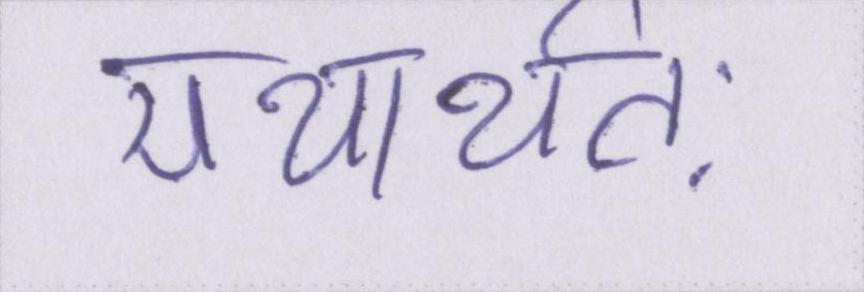 यथार्थतः